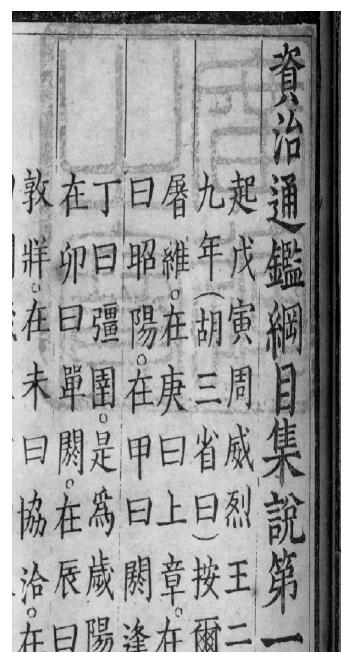 資治通鑑綱目集說第一
起戊寅周威烈王二
九年(胡三省曰)按爾
屠維。在庚曰上章。在
曰昭陽。在甲曰閼逢
丁曰彊圉。是爲歲陽
在卯曰單閼。在辰曰
敦牂。在未曰協洽。在